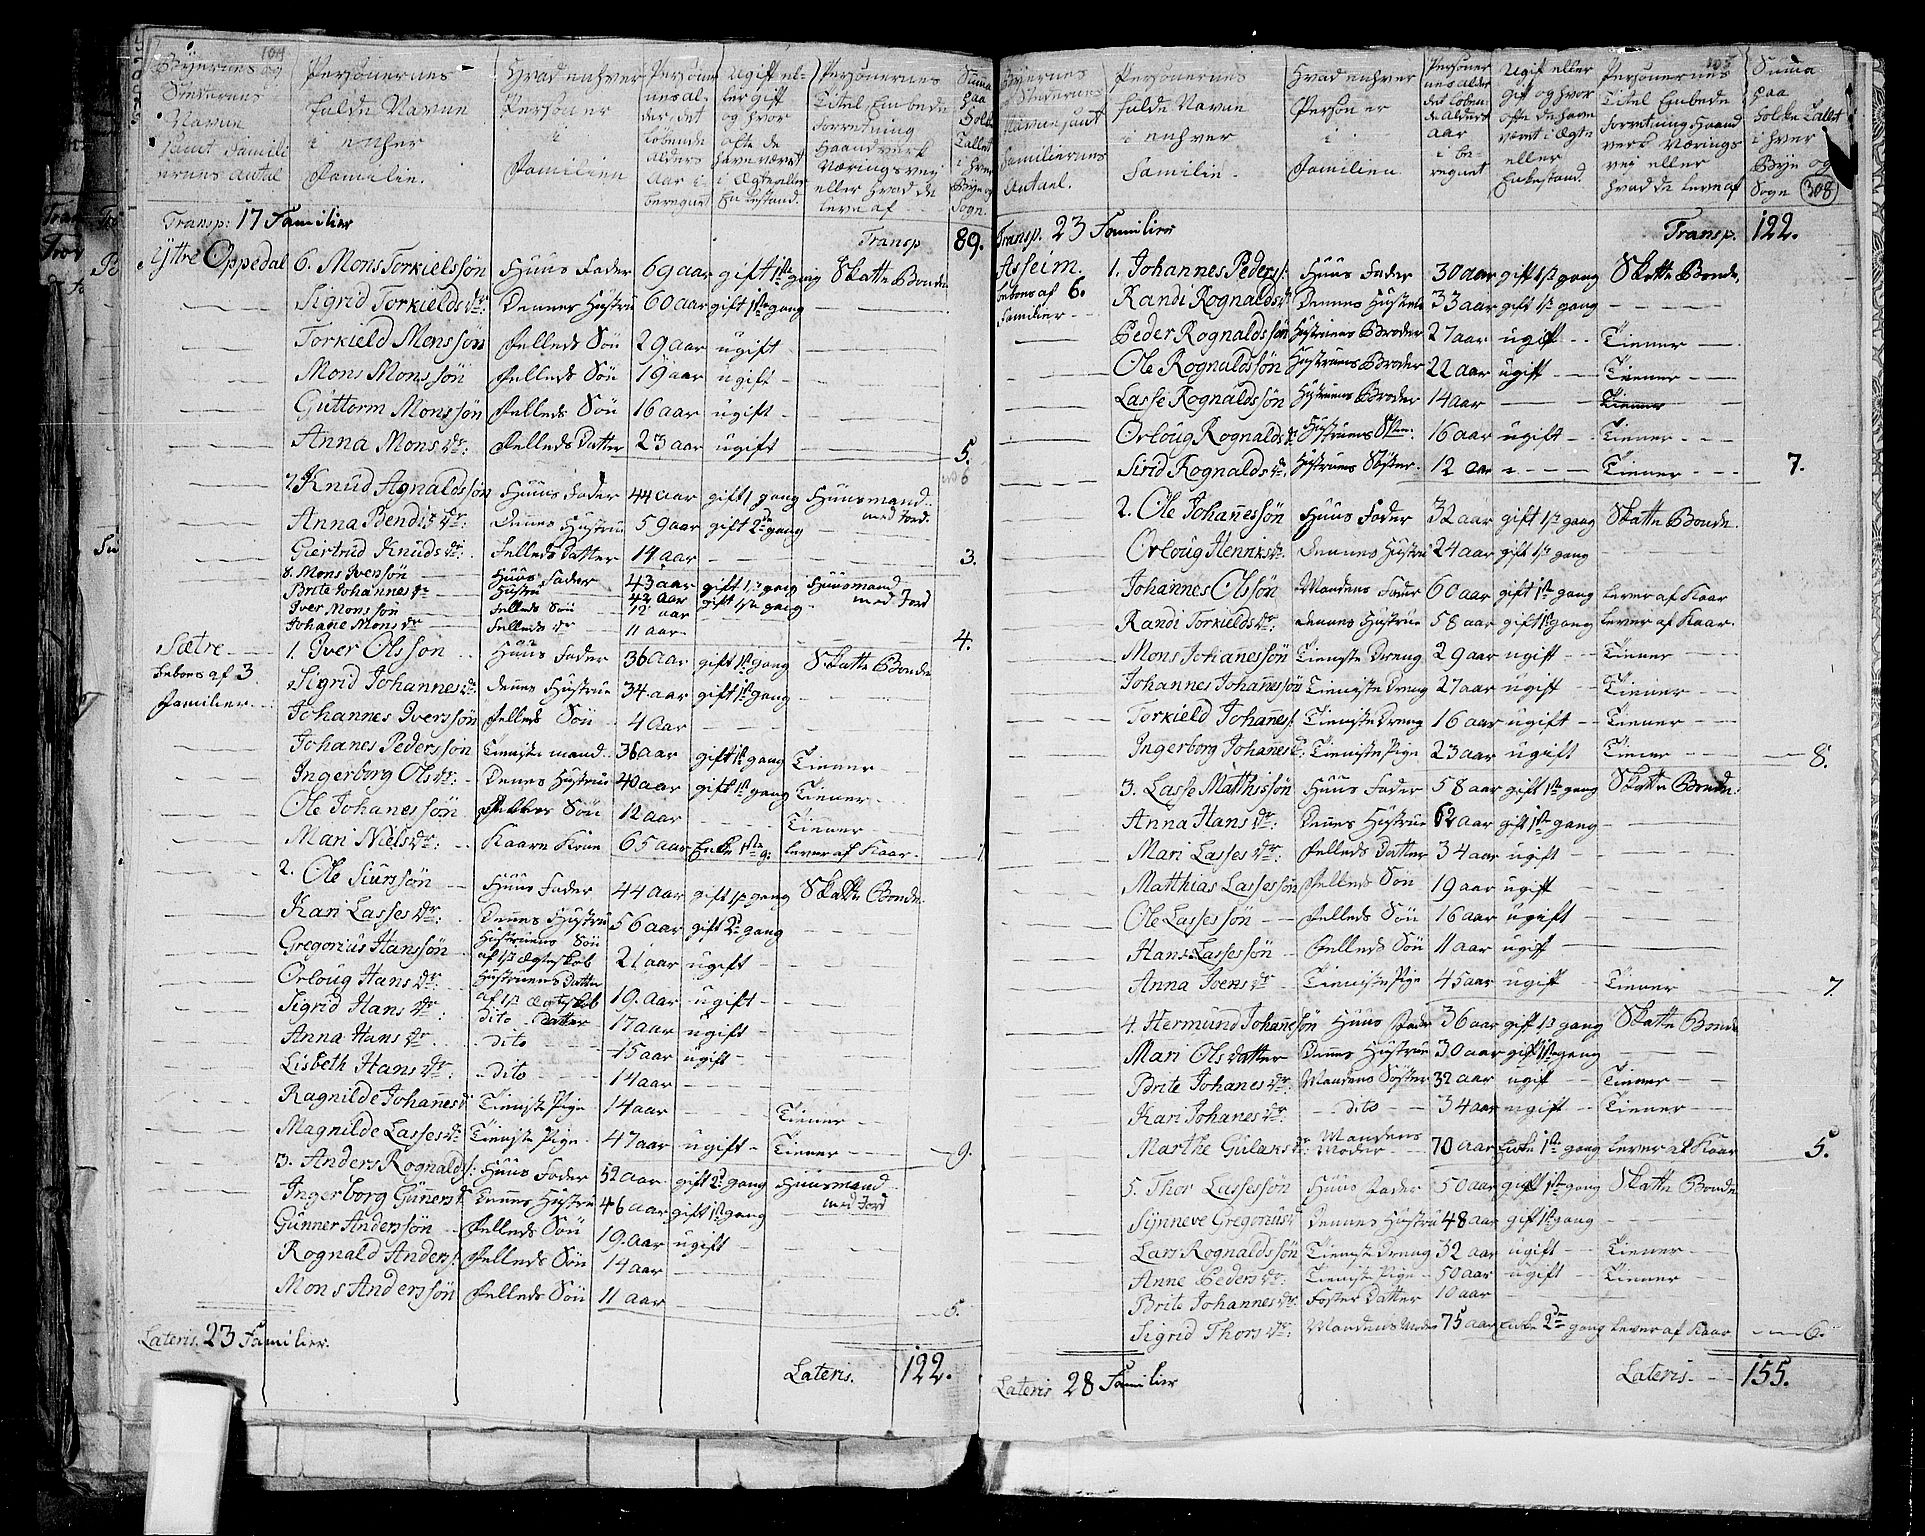 104
Byernes og Stedernes Navne samt Familiernes Antal
Personernes fulde Navne i enhver Familie.
Hvad enhver Person er i Familien
Personernes alder, det løbende Alders Aar iberegnet
Ugift eller gift og hvor ofte de have været i Ægte eller Enkestand.
Personernes Titel, Embede forretning Haandverk Næringsvej eller hvad de leve af
Summa paa Folke Tallet i hver Bye og Sogn.
Transp: 17 Familier Transp 89.
Yttre Oppedal 6. Mons Torkielssøn Huus Fader 69 aar gift 1ste gang Skatte Bonde
Sigrid Torkields dr: Dennes Hustru 60 aar gift 1ste gang
Torkield Monssøn Felleds Søn 29 aar ugift
Mons Monssøn Felleds Søn 19 aar ugift
Guttorm Monssøn Felleds Søn 16 aar ugift
Anna Mons dr: Felleds Datter 23 aar ugift 5.
6
7. Knud Agnaldssøn Huus Fader 44 aar gift 1 gang Huusmand med Jord.
Anna Bendix dr: Dennes Hustrue 59 aar gift 2de gang
Giertrud Knuds dr: Felleds Datter 14 aar 3.
8. Mons Ivensøn Huus Fader 43 aar gift 1ste gang Huusmand med Jord
Brite Johannes dr Hustru 42 aar gift 1ste gang
Iver Mons søn Felleds Søn 12 aar
Johane Mons dr Felleds dr 11 aar 4.
Sætre 1. Iver Olsson Huus Fader 36 aar gift 1ste gang Skatte Bonde
beboes af 3 Sigrid Johannes dr. Dennes Hustrue 34 aar gift 1ste gang
Familier. Johannes Iverssøn Felleds Søn 4 aar
Johanes Pederssøn Tieniste mand 36 aar gift 1ste gang Tiener
Ingerborg Ols dr: Dennes Hustrue 40 aar gift 1ste gang Tiener
Ole Johanessøn Felleds Søn 12 aar Tiener
Mari Niels dr: Kaare Kone 65 aar Enke 1ste g: lever af Kaar
2. Ole Siurssøn Huus Fader 44 aar gift 1ste gang Skatte Bonde
Kari Lasses dr: Dennes Hustru 56 aar gift 2de gang
Gregorius Hanssøn Hustruens Søn af 1st ægteskab 21 aar ugift
Orloug Hans dr: Hustruens Datter af 1st ægteskab 19. aar ugift
Sigrid Hans dr: Dito Datter 17 aar ugift
Anna Hans dr Dito 15 aar ugift
Lisbeth Hans dr: Dito 14 aar
Ragnilde Johannes d Tieniste Pige 14 aar Tiener
Magnilde Lasses dr Tieniste Pige 47 aar ugift Tiener 9.
3. Anders Rognalds: Huus Fader 52 aar gift 2de gang Huusmand med Jord
Ingerborg Guners d Dennes Hustru 46 aar gift 1ste gang
Gunner Anderssøn Felleds Søn 19. aar ugift
Rognald Anders: Felleds Søn 14 aar
Mons Anderssøn Felleds Søn 11 aar 5.
Lateris. 23 Familier. Lateris. 122.
105
Byernes Stedernes Navne samt Familiernes Antael.
Personernes fulde Navne i enhver Familie.
Hvad enhver Person er i Familien
Personernes alder det løbende Alders Aar iberegnet
Ugift eller gift og hvor ofte de have været i Ægte eller Enkestand
Personernes Titel Embede forretning Haandverk Næringsvej eller hvad de leve af
Summa paa Folke Tallet i hver Bye og Sogn
308
Transp. 23 Familier Transp. 122.
Asseim. 1. Johannes Peders: Huus Fader 30 aar gift 1ste gang Skatte Bonde
beboes af 6. Randi Rognalds dr Dennes Hustrue 33 aar gift 1ste gang
Familier Peder Rognaldssøn Hustruens Broder 27 aar ugift Tiener
Ole Rognaldssøn Hustruens Broder 22 aar ugift Tiener
Lasse Rognaldssøn Hustruens Broder 14 aar Tiener
Orloug Rognalds dr Hustruens Søster: 16 aar ugift Tiener
Sirid Rognalds dr. Hustruens Søster. 12 aar Tiener 7.
2. Ole Johanessøn Huus Fader 32 aar gift 1ste gang Skatte Bonde.
Orloug Henriks dr. Dennes Hustru 24 aar gift 1ste gang
Johannes Olssøn Mandens Fader 60 aar gift 1ste gang lever af Kaar
Randi Torkields dr: Dennes Hustrue 58 aar gift 1ste gang lever af Kaar.
Mons Johanessøn Tieniste Dreng 29 aar ugift Tiener
Johannes Johanessøn Tieniste Dreng 27 aar ugift Tiener
Torkield Johanes: Tieniste Dreng 16 aar ugift Tiener
Ingerborg Johanes dr. Tieniste Pige 23 aar ugift Tiener 8.
3. Lasse Matthissøn Huus Fader 58 aar gift 1ste gang Skatte Bonde.
Anna Hans dr: Dennes Hustrue 62 aar gift 1ste gang
Mari Lasses dr: Felleds Datter 34 aar ugift
Matthias Lassessøn Felleds Søn 19 aar ugift
Ole Lassessøn Felleds Søn 16 aar ugift
Hans Lassessøn Felleds Søn 11 aar ugift
Anna Ivens dr Tieniste Pige 45 aar ugift Tiener 7.
4. Hermund Johanesøn Huus Fader 36 aar gift 1st gang Skatte Bonde
Mari Olsdatter Dennes Hustrue 30 aar gift 1ste gang
Brite Johanes dr: Mandens Søster 32 aar ugift Tiener
Kari Johanes dr: Dito 34 aar ugift Tiener
Marthe Gulaks dr Mandens Moder 70 aar Enke 1ste gang lever af Kaar 5.
5. Thor Lassessøn Huus Fader 50 aar gift 1ste gang Skatte Bonde
Synneve Gregorius d Dennes Hustru 48 aar gift 1st gang
Lars Rognaldssøn Tieniste Dreng 32 aar ugift Tiener
Anne Peders dr: Tieniste Pige 50 aar ugift Tiener
Brite Johannes dr. Foster Datter 10 aar
Sigrid Thors dr: Mandens Moder 75 aar Enke 2de gang lever af Kaar 6.
Lateris 28 Familier Lateris. 155.